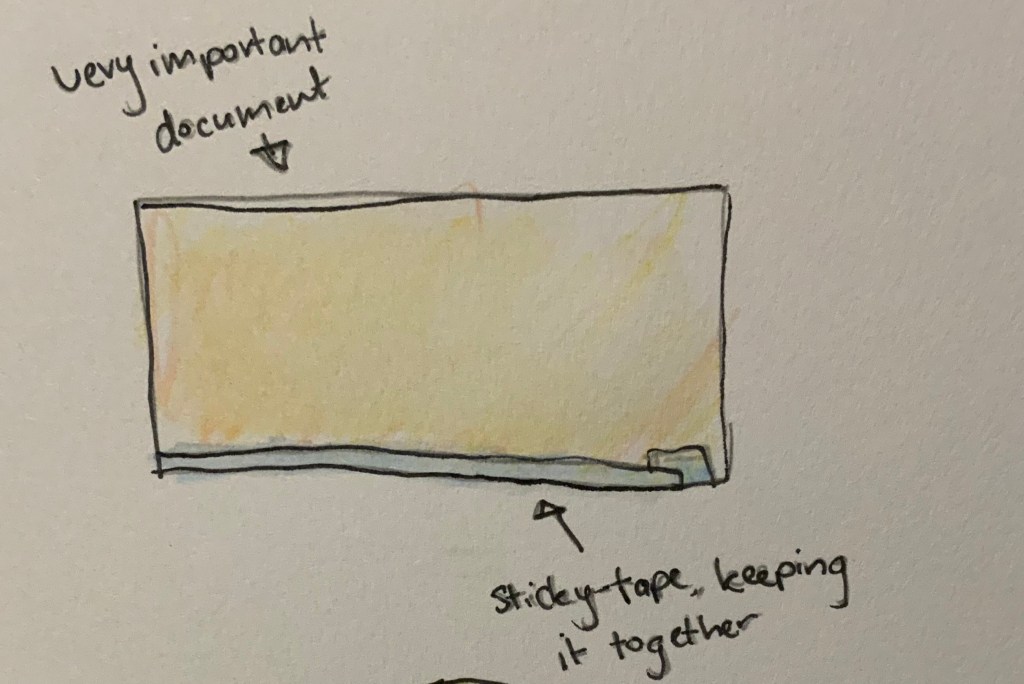 very important
document
sticky-tape, keeping
it together